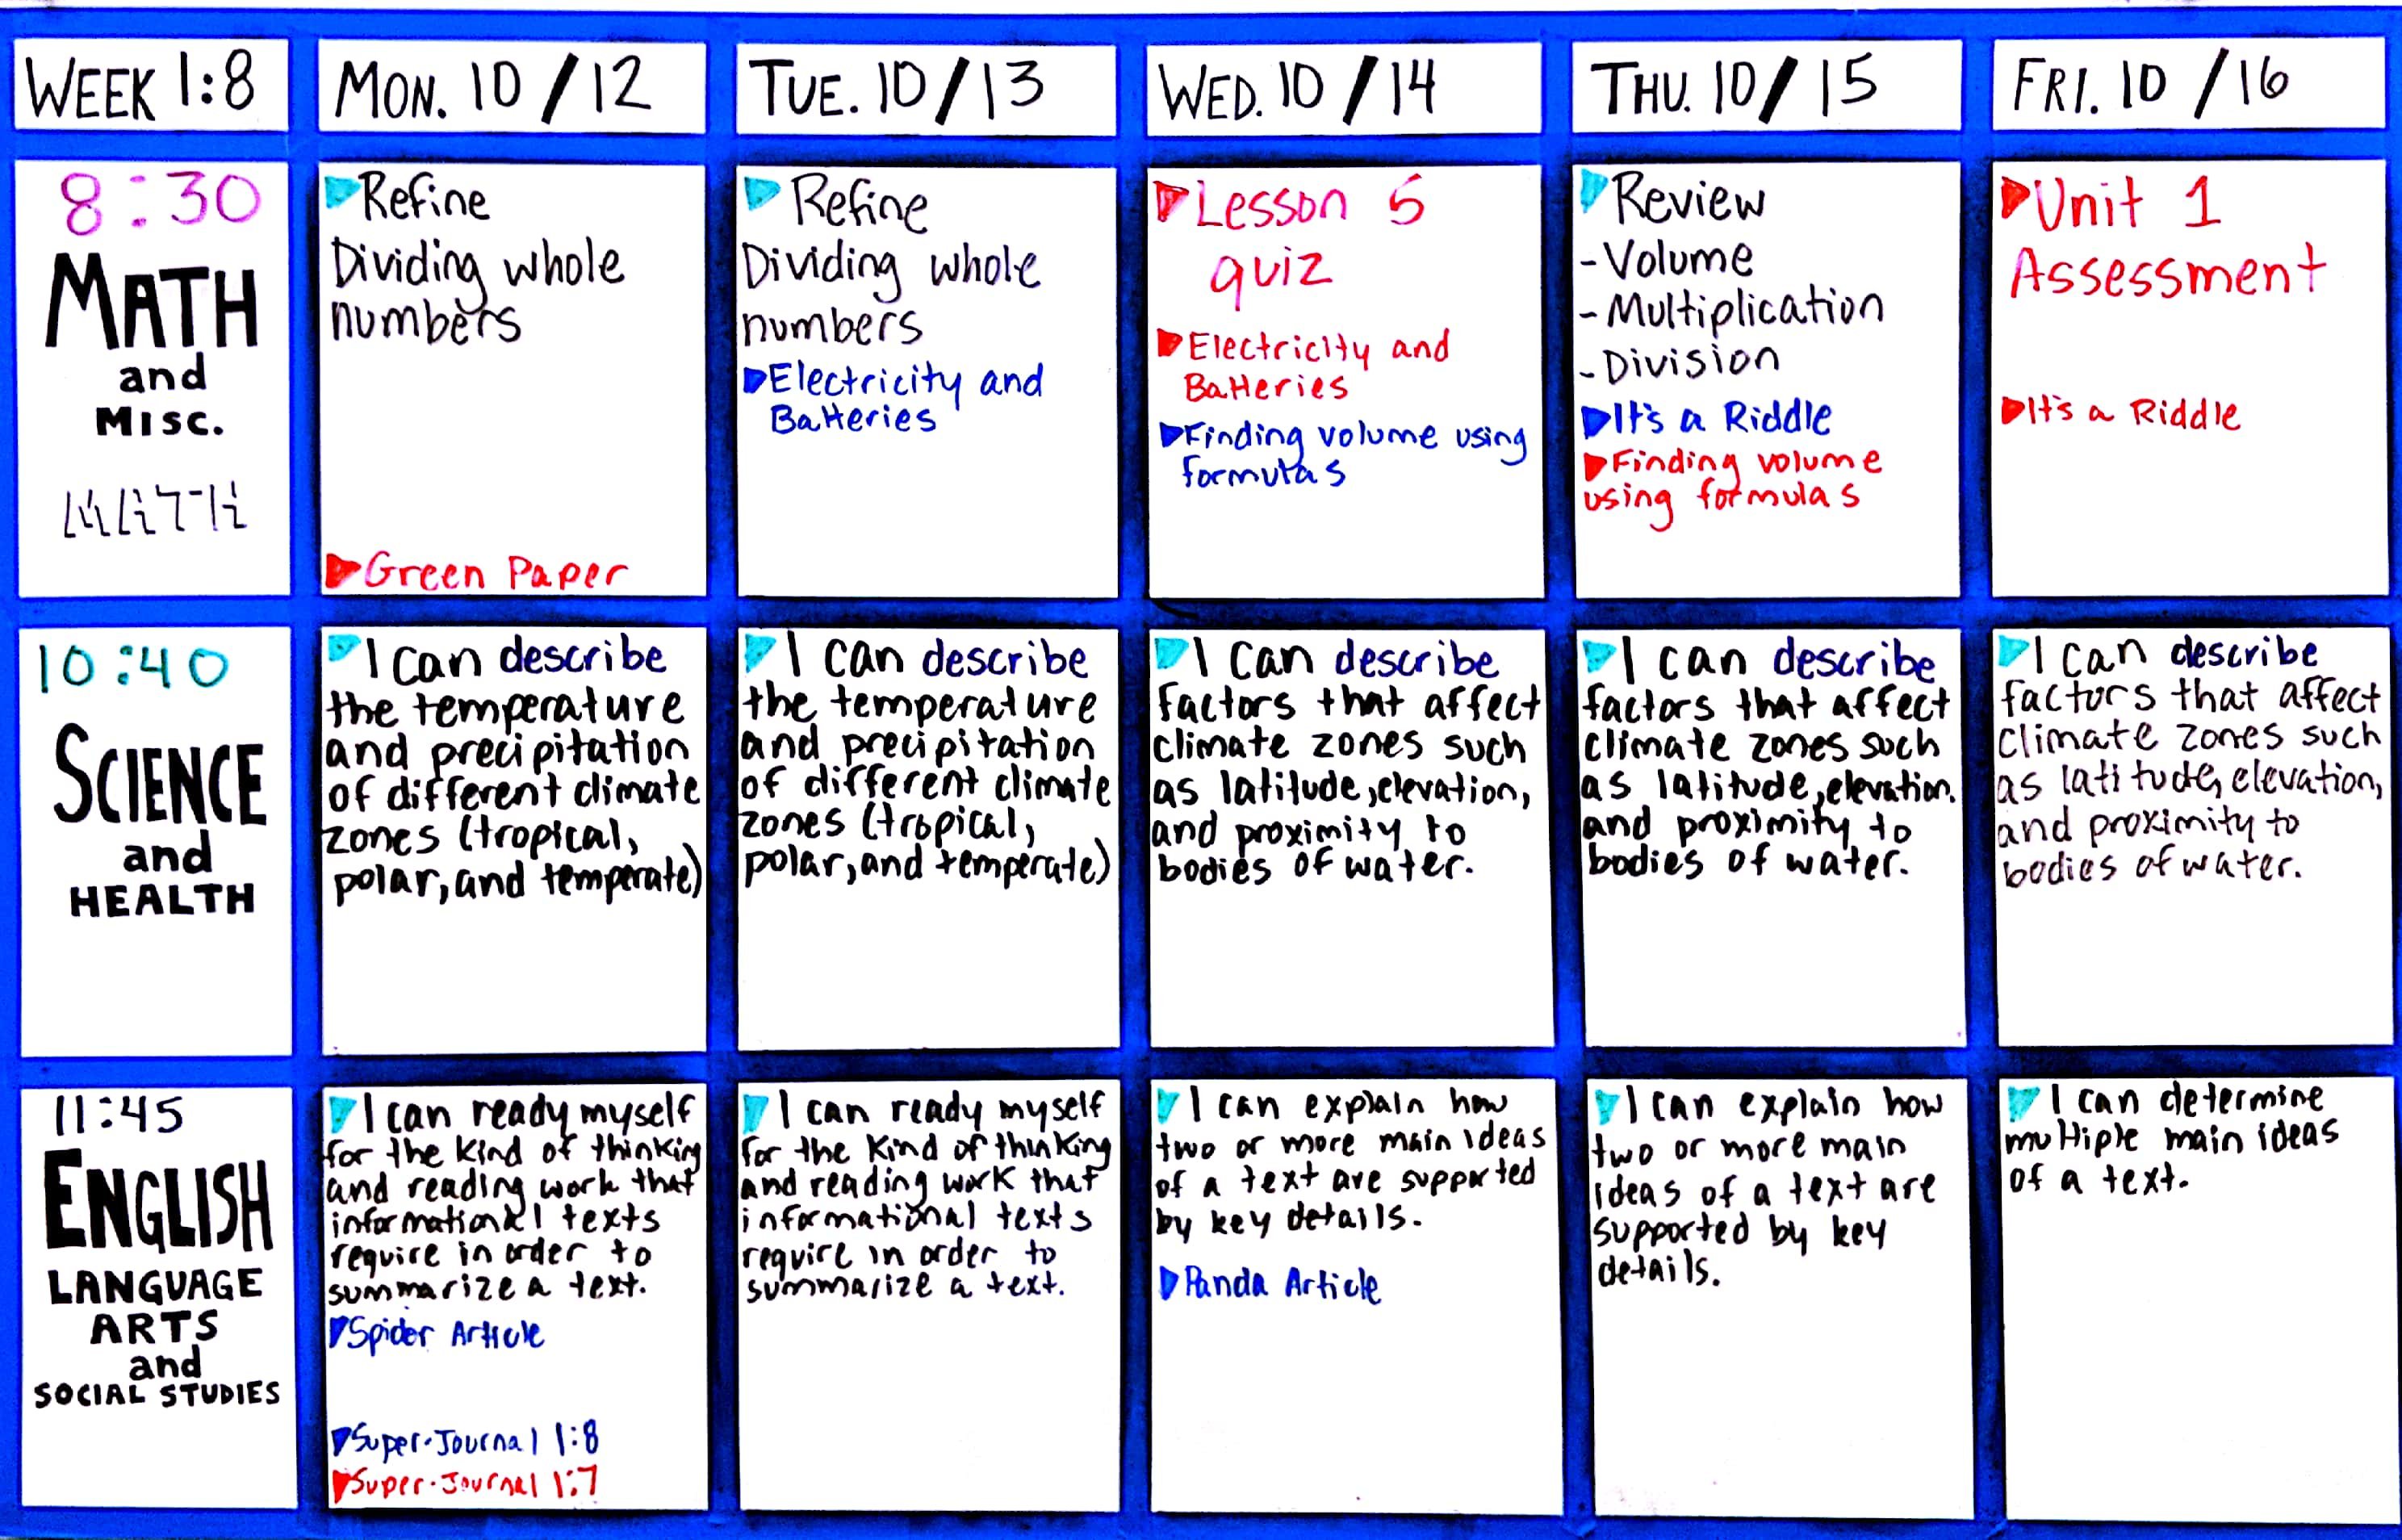 WEEK 1:8
MON. 10/12
TUE. 10/13
WED. 10/14
THU. 10/15
FRI. 10/16
8:30
MATH
and
MISC.
▶Refine
Dividing whole
numbers
▶Green Paper
▶Refine
Dividing whole
numbers
▶Electricity and
Batteries
▶Lesson 5
quiz
▶Electricity and
Batteries
▶Finding volume using
formulas
▶Review
-Volume
-Multiplication
-Division
▶It's a Riddle
▶Finding volume
using formulas
▶Unit 1
Assessment
▶It's a Riddle
10:40
SCIENCE
and
HEALTH
▶I can describe
the temperature
and precipitation
of different climate
zones (tropical,
polar, and temperate)
▶I can describe
the temperature
and precipitation
of different climate
zones (tropical,
polar, and temperate)
▶I can describe
factors that affect
climate zones such
as latitude, elevation,
and proximity to
bodies of water.
▶I can describe
factors that affect
climate zones such
as latitude, elevation,
and proximity to
bodies of water.
▶I can describe
factors that affect
climate zones such
as latitude, elevation,
and proximity to
bodies of water.
11:45
ENGLISH
LANGUAGE
ARTS
and
SOCIAL STUDIES
▶I can ready myself
for the kind of thinking
and reading work that
informational texts
require in order to
summarize a text.
▶Spider Article
▶Super-Journal 1:8
▶Super-Journal 1:7
▶I can ready myself
for the kind of thinking
and reading work that
informational texts
require in order to
summarize a text.
▶I can explain how
two or more main ideas
of a text are supported
by key details.
▶Panda Article
▶I can explain how
two or more main
ideas of a text are
supported by key
details.
▶I can determine
multiple main ideas
of a text.